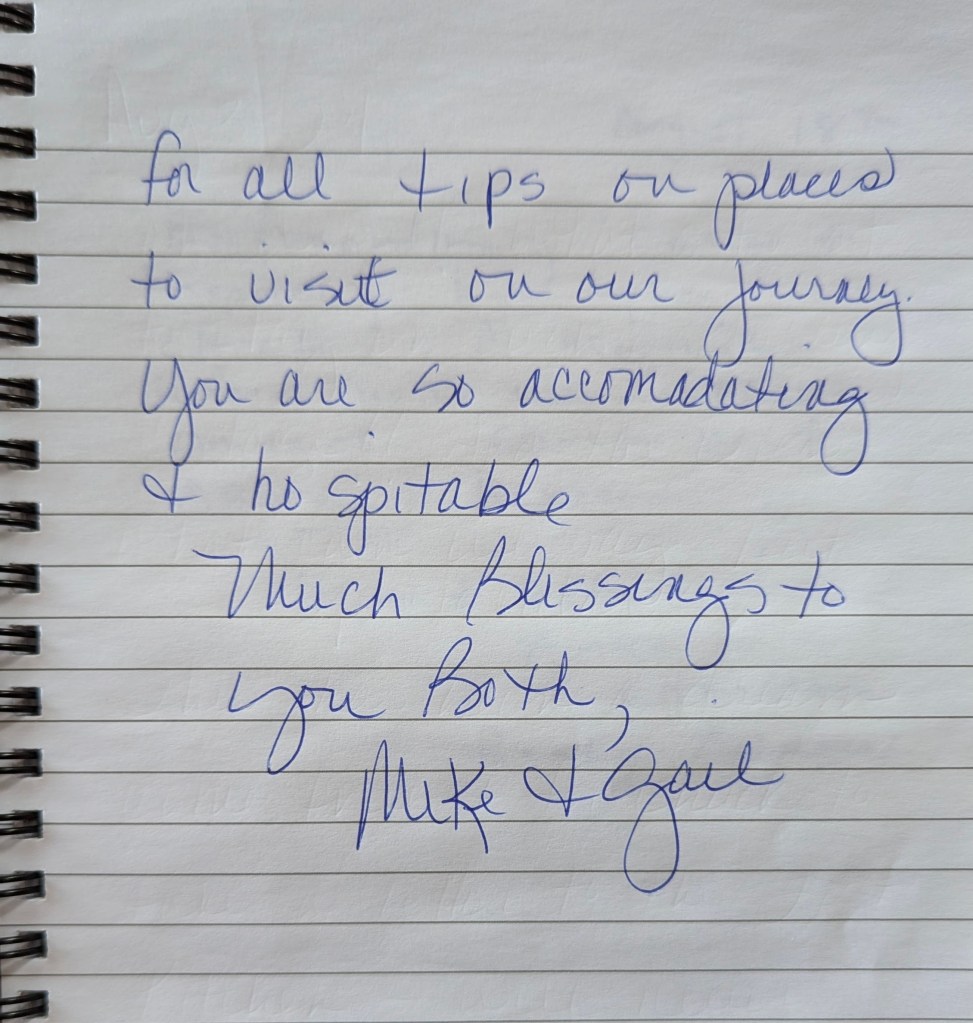 for all tips on places
to visit on our journey.
You are so accomadating
& hospitable
Much Blessings to
you Both,
Mike & Gail